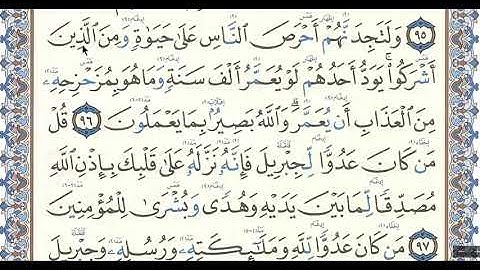 ٩٥ وَلَتَجِدَنَّهُمْ أَحْرَصَ النَّاسِ عَلَىٰ حَيَوٰةٍ وَمِنَ الَّذِينَ
أَشْرَكُوا۟ ۚ يَوَدُّ أَحَدُهُمْ لَوْ يُعَمَّرُ أَلْفَ سَنَةٍ وَمَا هُوَ بِمُزَحْزِحِهِۦ
مِنَ الْعَذَابِ أَن يُعَمَّرَ ۗ وَاللَّهُ بَصِيرٌۢ بِمَا يَعْمَلُونَ ٩٦ قُلْ
مَن كَانَ عَدُوًّا لِّجِبْرِيلَ فَإِنَّهُۥ نَزَّلَهُۥ عَلَىٰ قَلْبِكَ بِإِذْنِ اللَّهِ
مُصَدِّقًا لِّمَا بَيْنَ يَدَيْهِ وَهُدًى وَبُشْرَىٰ لِلْمُؤْمِنِينَ
٩٧ مَن كَانَ عَدُوًّا لِّلَّهِ وَمَلَٰٓئِكَتِهِۦ وَرُسُلِهِۦ وَجِبْرِيلَ